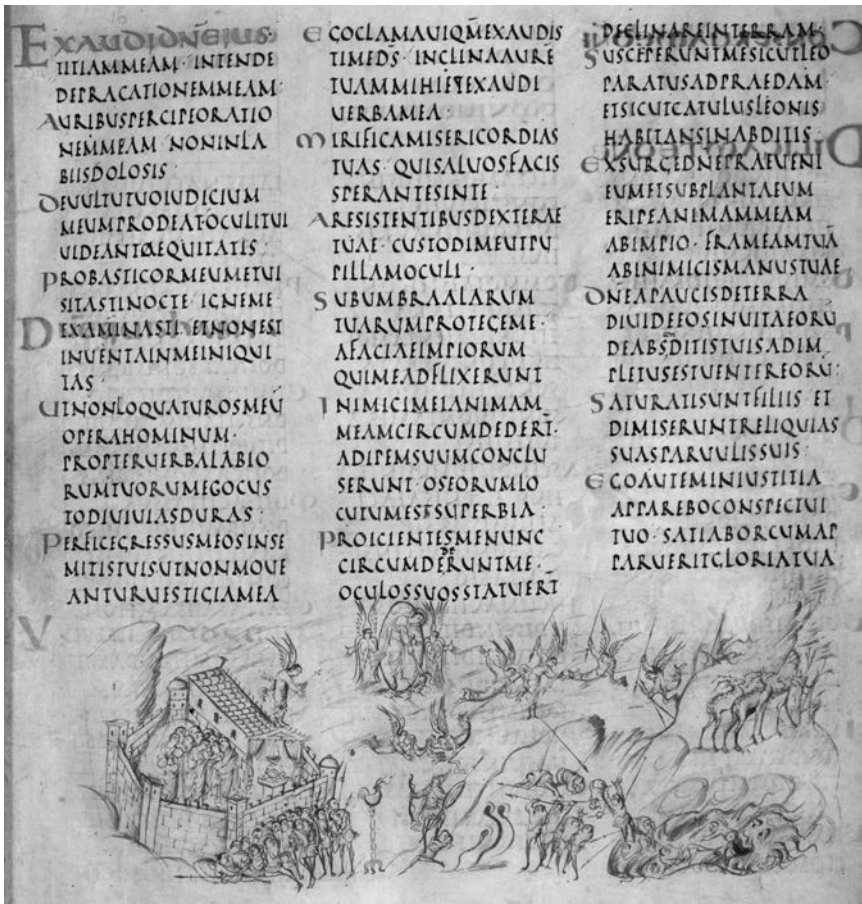 EXAUDIDN̄EIUS·
TITIAMMEAM· INTENDE
DEPRACATIONEMMEAM·
AURIBUSPERCIPEORATIO
NEMMEAM· NONINLA
BIISDOLOSIS·
DEUULTUTUOIUDICIUM
MEUMPRODEAT·OCULITUI
UIDEANTAEQUITATIS·
PROBASTICORMEUMETUI
SITASTINOCTE· IGNEME
EXAMINASTI· ETNONEST
INUENTAINMEINIQUI
TAS·
UTNONLOQUATUROSMEŪ
OPERAHOMINUM·
PROPTERUERBALABIO
RUMTUORUMEGOCUS
TODIUIUIASDURAS·
PERFICEGRESSUSMEOSINSE
MITISTUISUTNONMOUE
ANTURUESTIGIAMEA
EGOCLAMAUIQM̄EXAUDIS
TIMED̄S· INCLINAAURĒ
TUAMMIHIETEXAUDI
UERBAMEA·
MIRIFICAMISERICORDIAS
TUAS· QUISALUOSFACIS
SPERANTESINTE·
ARESISTENTIBUSDEXTERAE
TUAE· CUSTODIMEUTPU
PILLAMOCULI·
SUBUMBRAALARUM
TUARUMPROTEGEME·
AFACIAEIMPIORUM
QUIMEADFLIXERUNT
INIMICIMEIANIMAM
MEAMCIRCUMDEDERT̄·
ADIPEMSUUMCONCLU
SERUNT· OSEORUMLO
CUTUMESTSUPERBIA·
PROICIENTESMENUNC
DE
CIRCUMDERUNTME·
OCULOSSUOSSTATUERT̄
DECLINAREINTERRAM·
SUSCEPERUNTMESICUTLEO
PARATUSADPRAEDAM·
ETSICUTCATULUSLEONIS
HABITANSINABDITIS·
EXSURGEDN̄EPRAEUENI
EUMETSUBPLANTAEUM
ERIPEANIMAMMEAM
ABIMPIO· FRAMEAMTUĀ
ABINIMICISMANUSTUAE
DN̄EAPAUCISDETERRA
DIUIDEEOSINUITAEORŪ
DEABSDITISTUISADIM
PLETUSESTUENTEREORŪ·
SATURATISUNTFILIIS· ET
DIMISERUNTRELIQUIAS
SUASPARUULISSUIS·
EGOAUTEMINIUSTITIA
APPAREBOCONSPECTUI
TUO· SATIABORCUMAP
PARUERITGLORIATUA